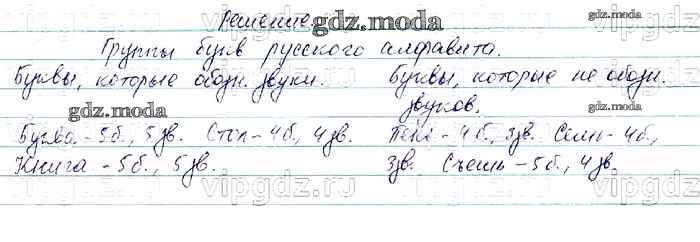 Решение.
gdz.moda
gdz.moda
Группы букв русского алфавита.
Буквы, которые обозн. звуки. Буквы, которые не обозн.
звуков.
gdz.moda
gdz.moda
Буква - 5б., 5 зв. Стол - 4б., 4 зв. Пень - 4б., 3зв. Семь - 4б.,
Книга - 5б., 5 зв. 3зв. Съешь - 5б., 4 зв.
vipgdz.ru